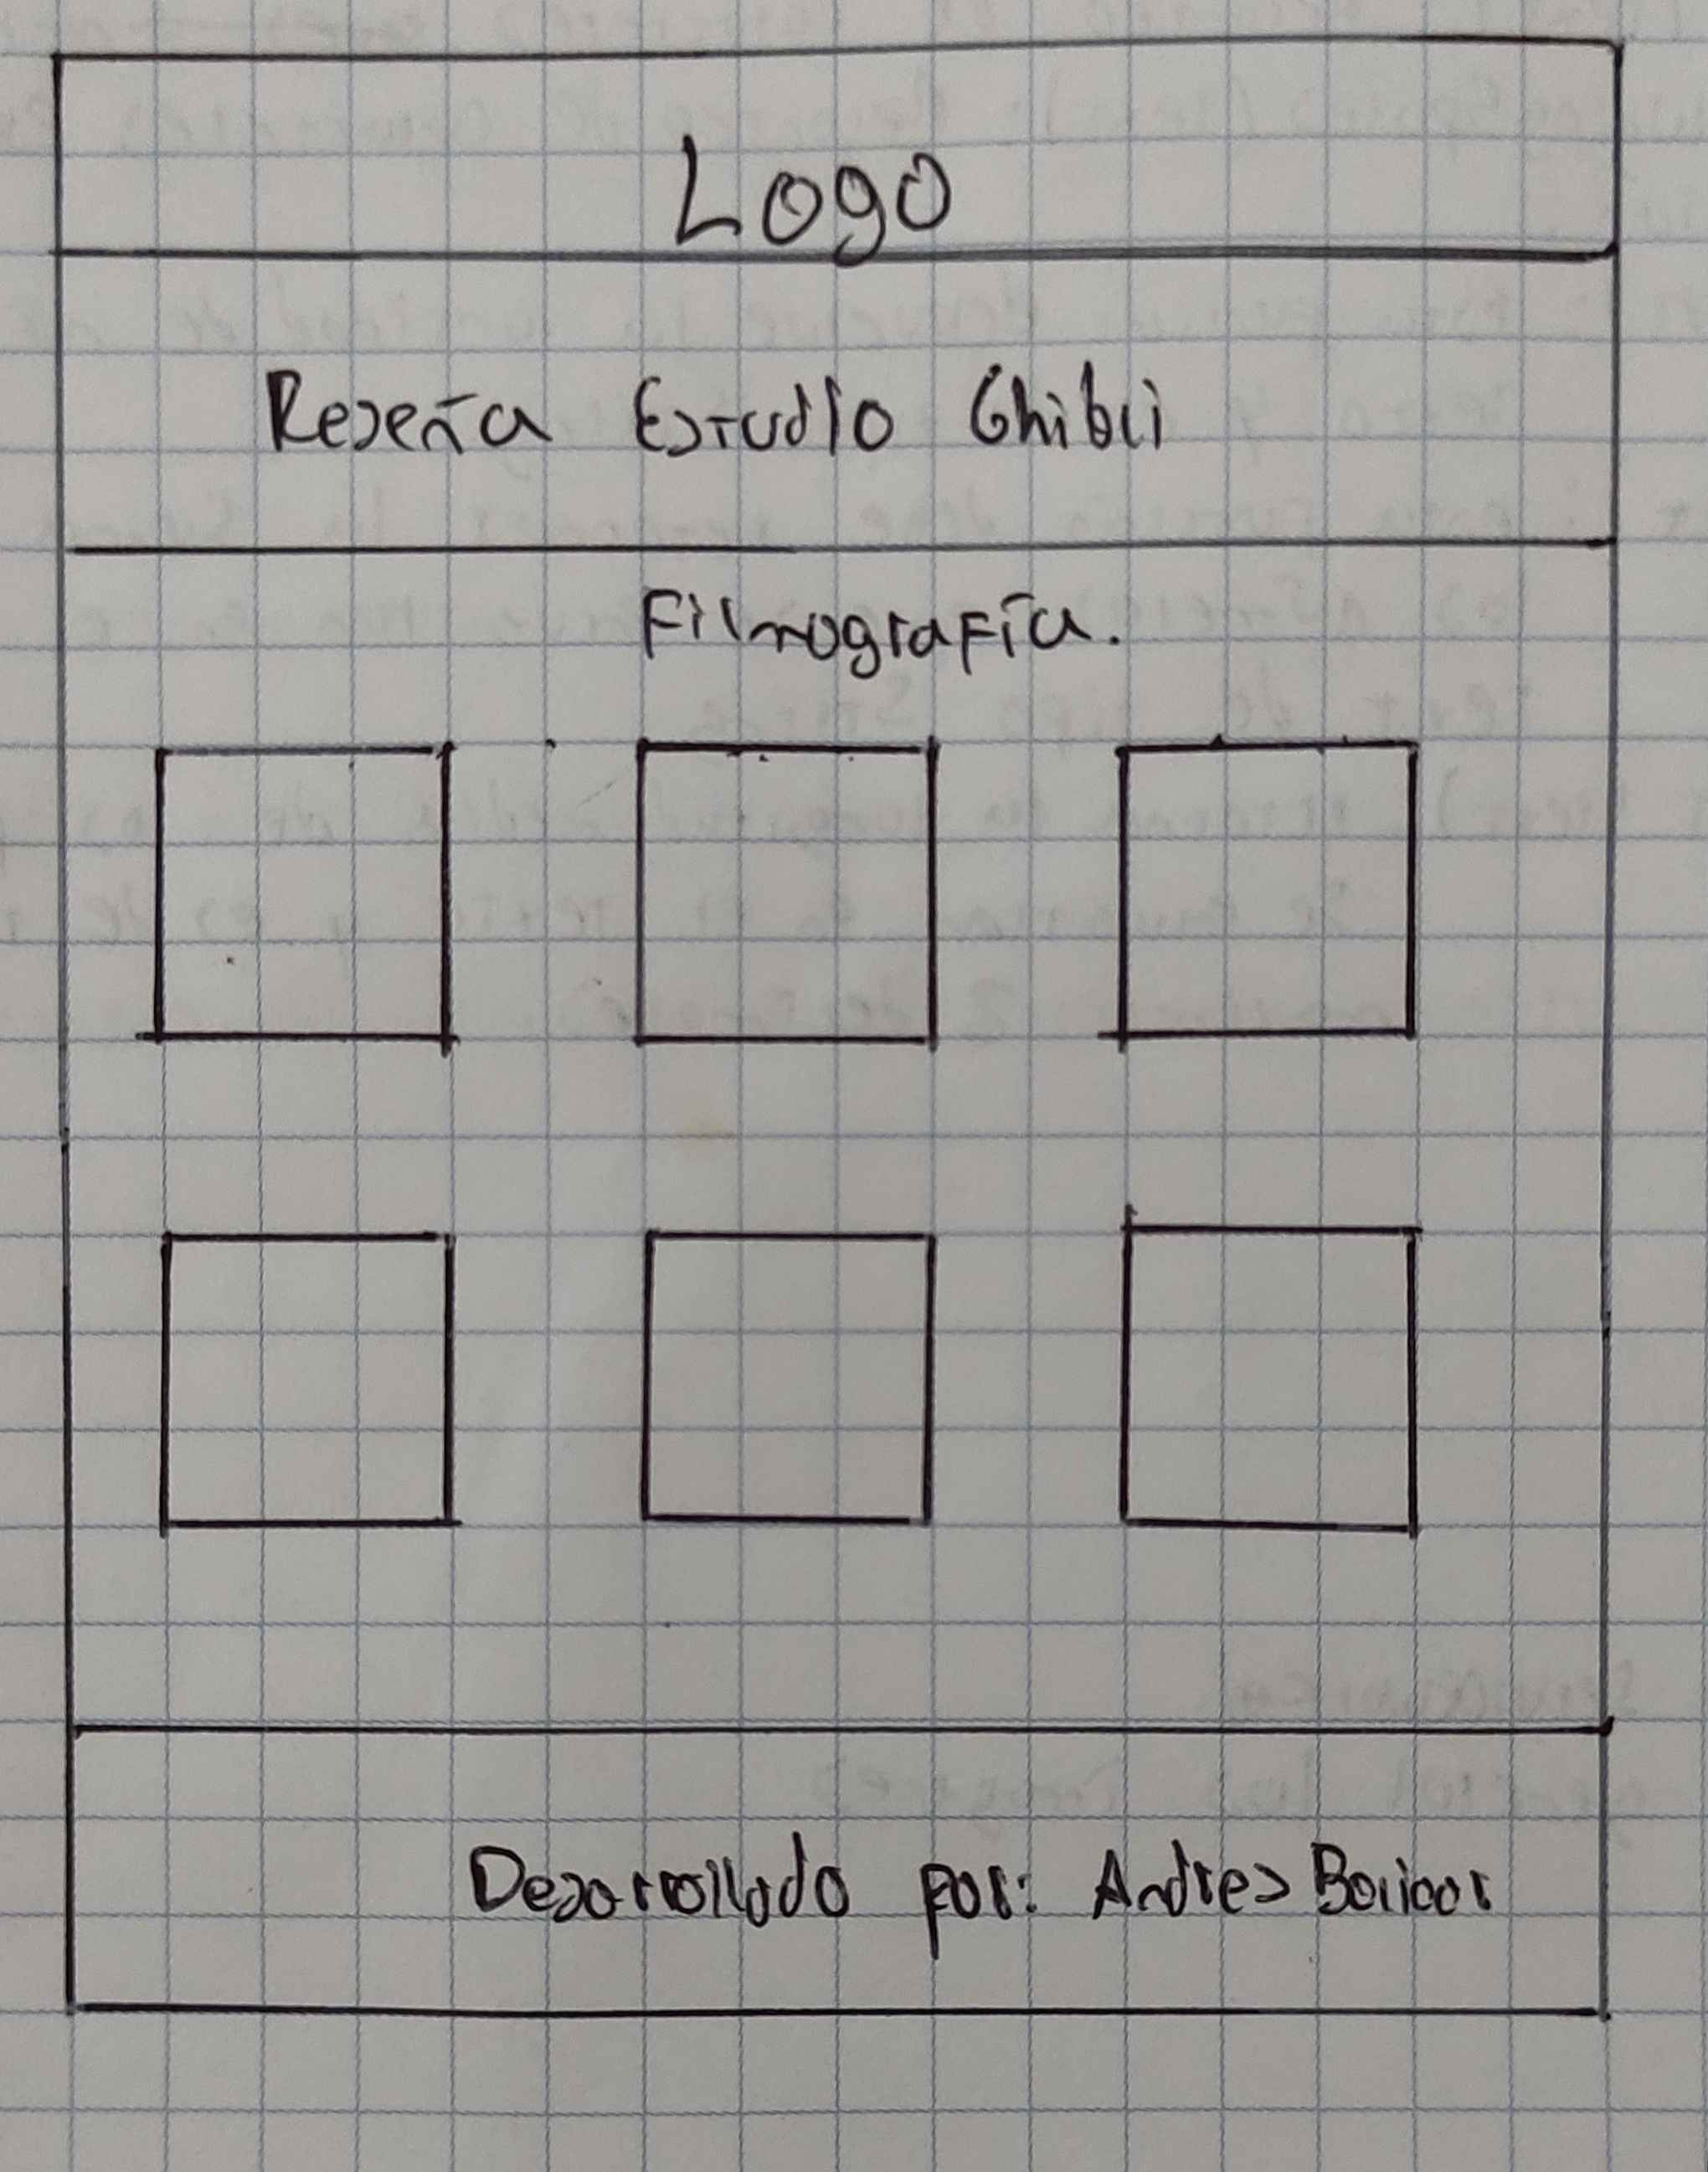 Logo
Reseña Estudio Ghibli
Filmografía.
Desarrollado por: Andres